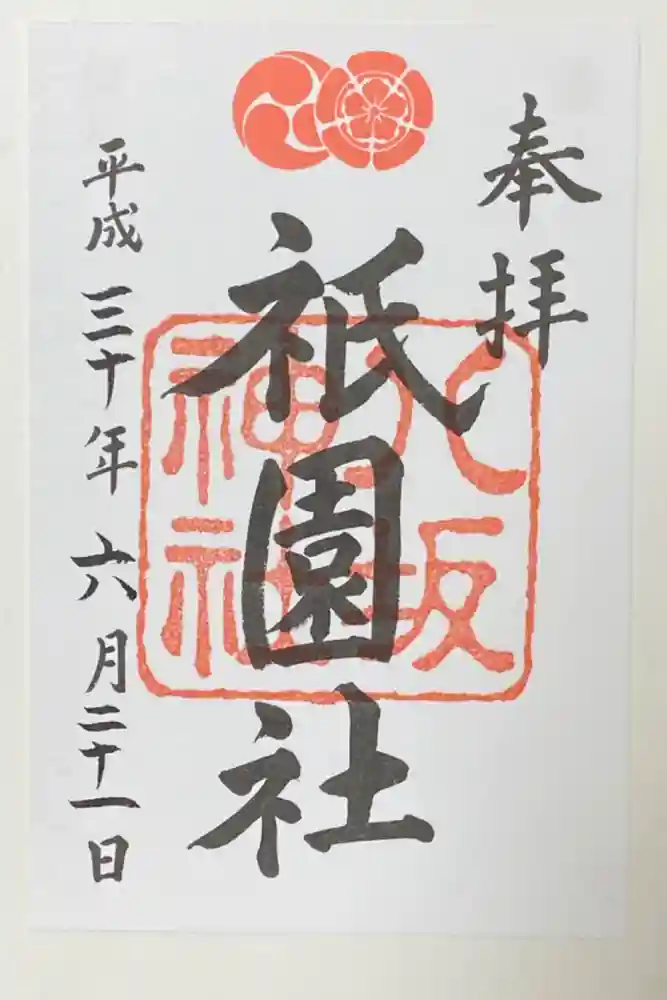 奉拝
祇園社
八坂
神社
平成三十年六月二十一日